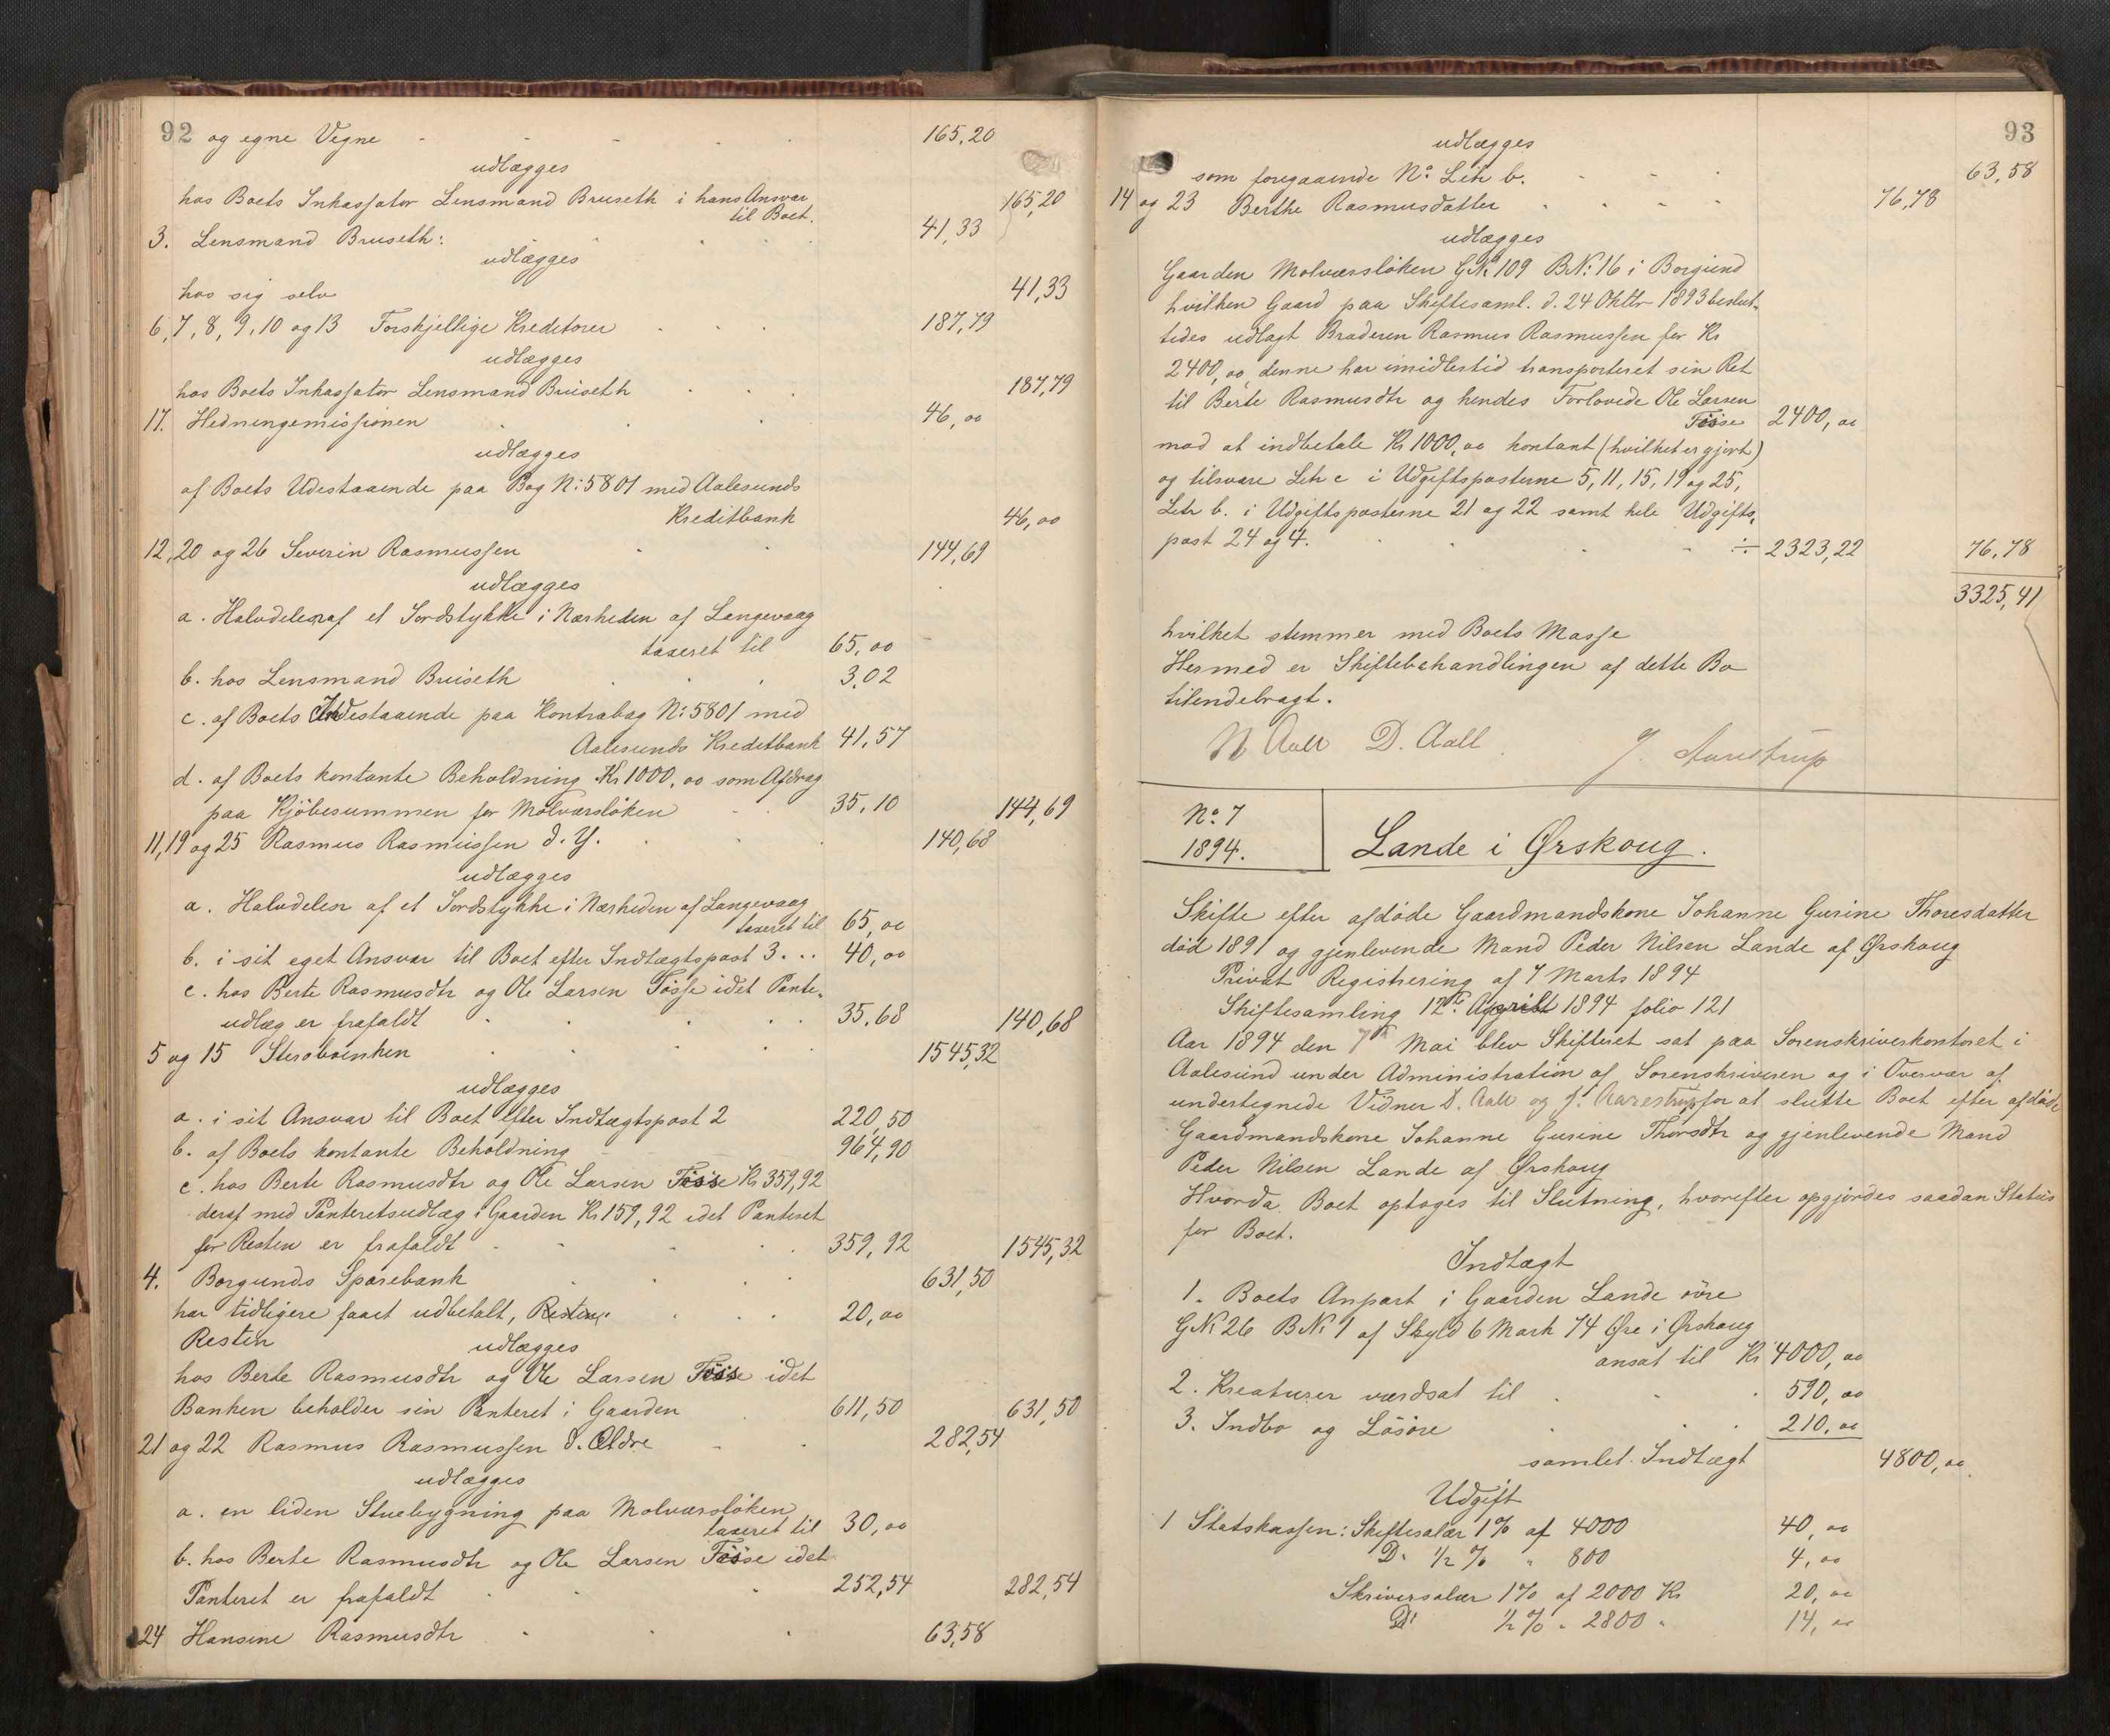 92 og egne Vegne 165,20
udlægges
hos Boets Inkassator Lensmand Bruseth i hans Ansvar
til Boet. 165,20
3. Lensmand Bruseth: 41,33
udlægges
hos sig selv 41,33
6, 7, 8, 9, 10 og 13 Forskjellige Kreditorer 187,79
udlægges
hos Boets Inkassator Lensmand Bruseth 187,79
17. Hedningemissionen 46,00
udlægges
af Boets Udestaaende paa Bog N: 5801 med Aalesunds
Kreditbank 46,00
12, 20 og 26 Severin Rasmussen 144,69
udlægges
a. Halvdelen af et Jordstykke i Nærheden af Langevaag
taxeret til 65,00
b. hos Lensmand Bruseth 3,02
c. af Boets Indestaaende paa Kontrabog N: 5801 med
Aalesunds Kreditbank 41,57
d. af Boets kontante Beholdning Kr 1000,00 som Afdrag
paa Kjöbesummen for Molværslöken 35,10 144,69
11, 19 og 25 Rasmus Rasmussen d. Y. 140,68
udlægges
a. Halvdelen af et Jordstykke i Nærheden af Langevaag
taxeret til 65,00
b. i sit eget Ansvar til Boet efter Indtægtspost 3... 40,00
c. hos Berte Rasmusdtr og Ole Larsen Tösse idet Pante-
udlæg er frafaldt 35,68 140,68
5 og 15 Sterobanken 1545,32
udlægges
a. i sit Ansvar til Boet efter Indtægtspost 2 220,50
b. af Boets kontante Beholdning 964,90
c. hos Berte Rasmusdtr og Ole Larsen Tösse Kr 359,92
deraf med Panteretsudlæg i Gaarden Kr 159,92 idet Panteret
for Resten er frafaldt 359,92 1545,32
4. Borgunds Sparebank 631,50
har tidligere faaet udbetalt, Resten. 20,00
Resten udlægges
hos Berte Rasmusdtr og Ole Larsen Tösse idet
Banken beholder sin Panteret i Gaarden 611,50 631,50
21 og 22 Rasmus Rasmussen d. Ældre 282,54
udlægges
a. en liden Stuebygning paa Molværslöken
taxeret til 30,00
b. hos Berte Rasmusdtr og Ole Larsen Tösse idet
Panteret er frafaldt 252,54 282,54
24 Hansine Rasmusdtr 63,58
93
udlægges
som foregaaende No Litr b. 63,58
14 og 23 Berthe Rasmusdatter 76,78
udlægges
Gaarden Molværslöken GN: 109 BN: 16 i Borgund
hvilken Gaard paa Skiftesaml. d. 24 Oktbr 1893 beslut-
tedes udlagt Broderen Rasmus Rasmussen for Kr
2400,00 denne har imidlertid transporteret sin Ret
til Berte Rasmusdtr og hendes Forlovede Ole Larsen
Tösse 2400,00
mod at indbetale Kr 1000,00 kontant (hvilket er gjort)
og tilsvare Litr c i Udgiftsposterne 5, 11, 15, 19 og 25,
Litr b. i Udgiftsposterne 21 og 22 samt hele Udgifts-
post 24 og 4. ÷ 2323,22 76,78
3325,41
hvilket stemmer med Boets Masse
Hermed er Skiftebehandlingen af dette Bo
tilendebragt.
N Aall D. Aall J. Aarestrup
No 7
1894.
Lande i Ørskoug.
Skifte efter afdöde Gaardmandskone Johanne Gurine Thoresdatter
död 1891 og gjenlevende Mand Peder Nilsen Lande af Ørskoug
Privat Registrering af 7 Marts 1894
Skiftesamling 12te April 1894 folio 121
Aar 1894 den 7de Mai blev Skifteret sat paa Sorenskriverkontoret i
Aalesund under Administration af Sorenskriveren og i Overvær af
undertegnede Vidner D. Aall og J. Aarestrup for at slutte Boet efter afdöde
Gaardmandskone Johanne Gurine Thorsdtr og gjenlevende Mand
Peder Nilsen Lande af Ørskoug
Hvorda Boet optoges til Slutning, hvorefter opgjordes saadan Status
for Boet.
Indtægt
1. Boets Anpart i Gaarden Lande övre
GN: 26 BN: 1 af Skyld 6 Mark 74 Øre i Ørskoug
ansat til Kr 4000,00
2. Kreaturer værdsat til 590,00
3. Indbo og Lösöre 210,00
samlet Indtægt 4800,00
Udgift
1 Statskassen: Skiftesalær 1% af 4000 40,00
Do 1/2 % " 800 4,00
Skriversalær 1% af 2000 Kr 20,00
Do 1/2 % " 2800 " 14,00